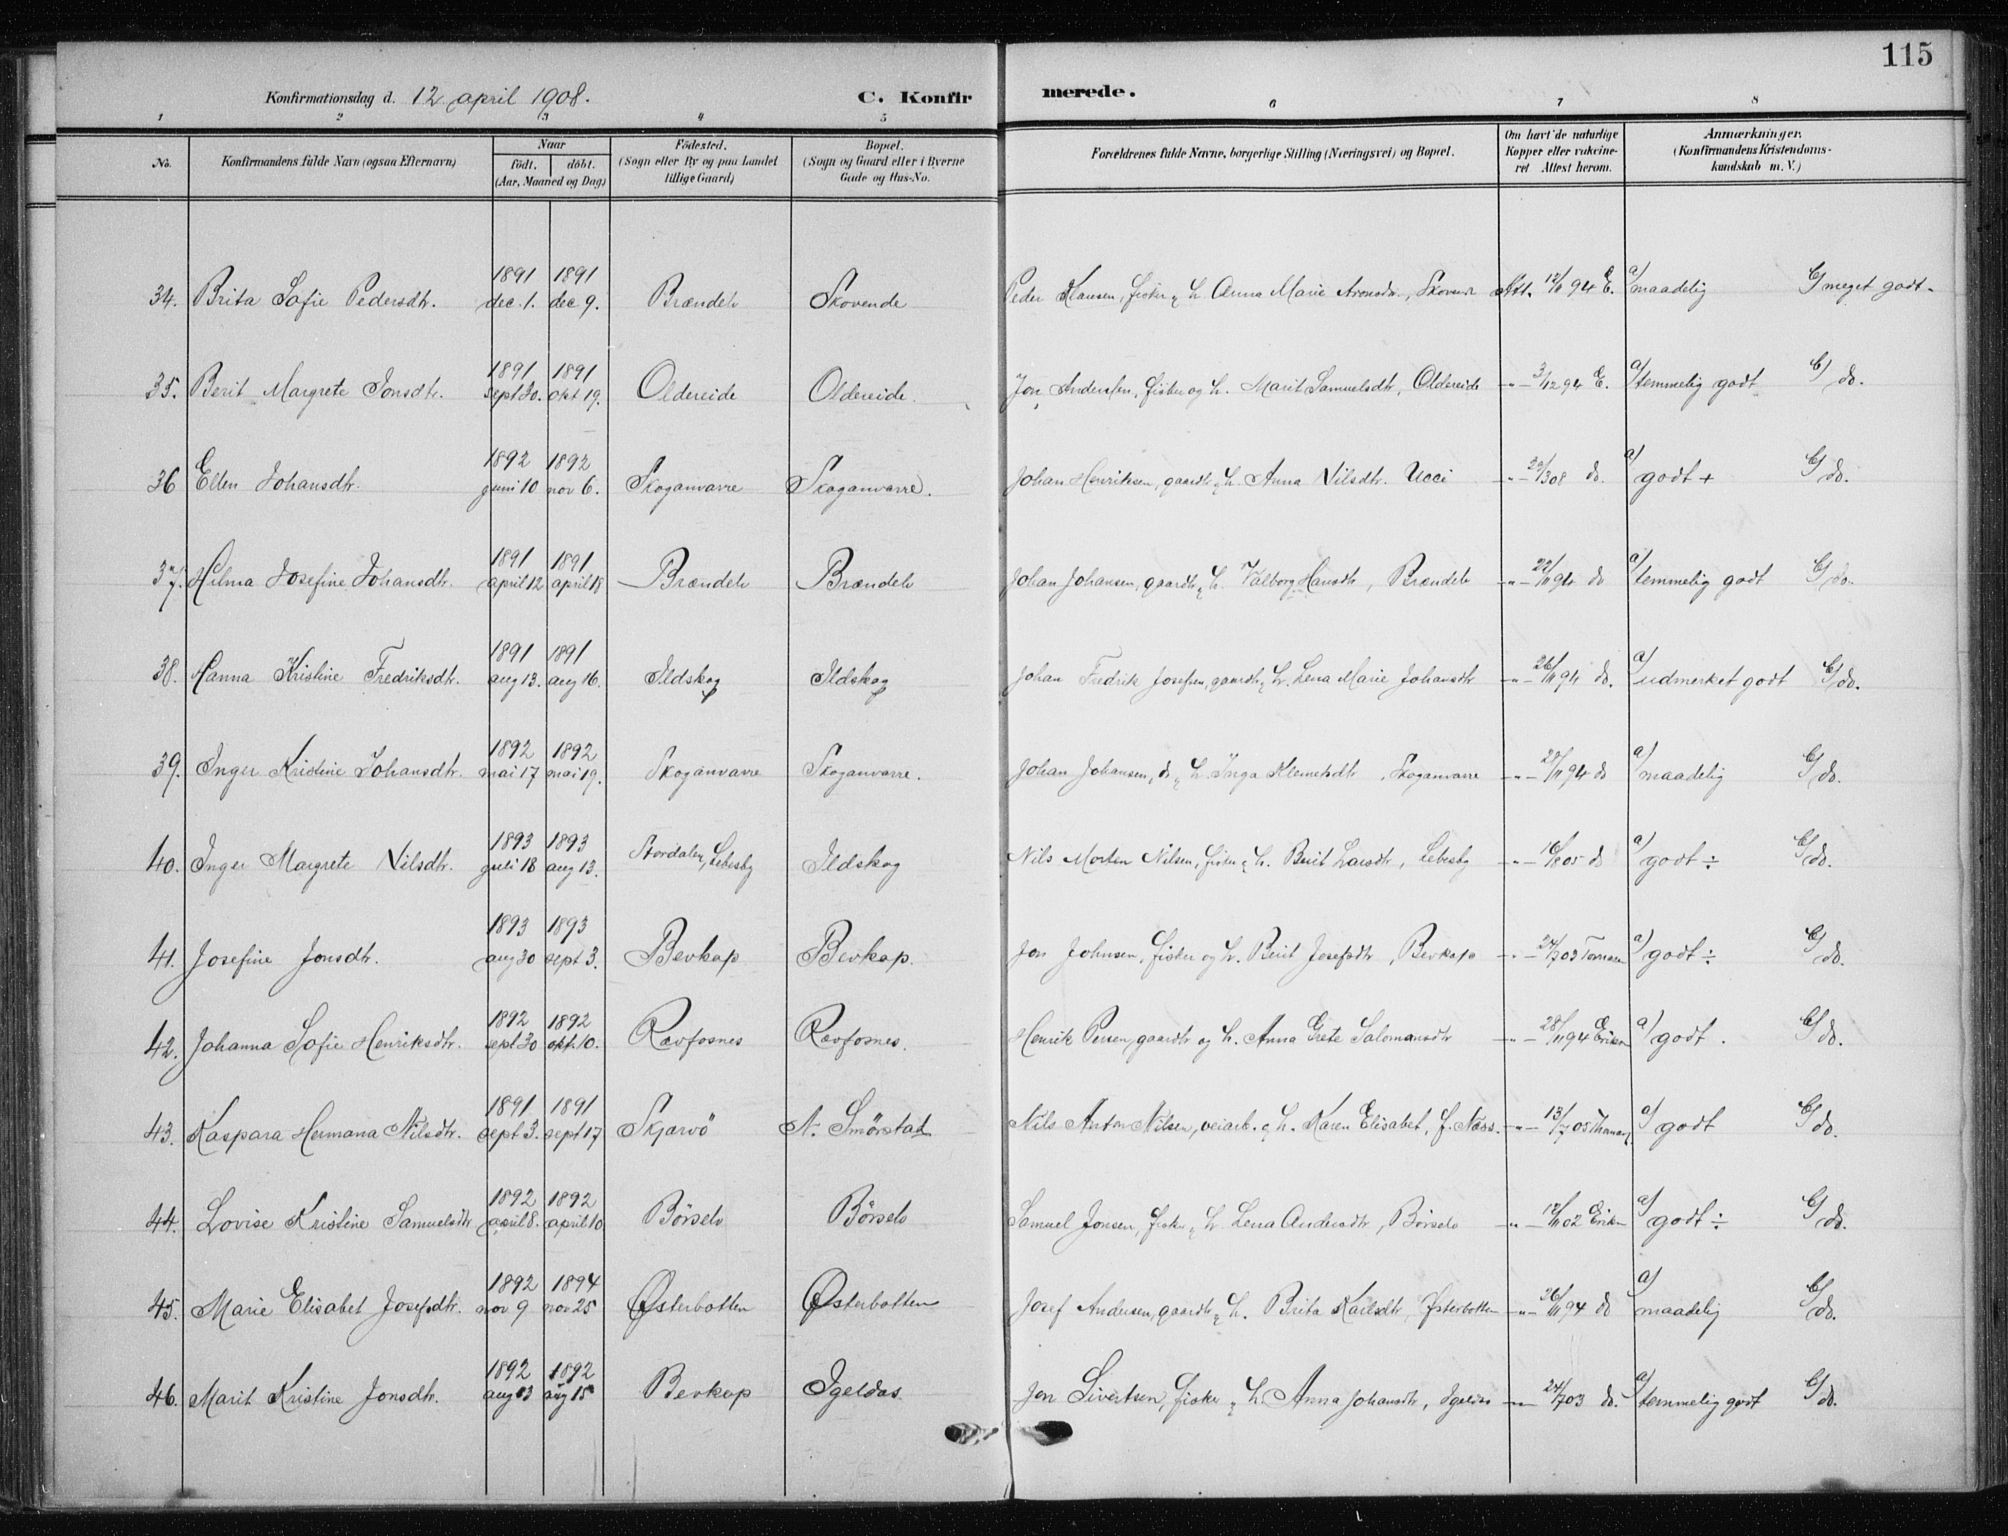 115
Konfirmationsdag d. 12 april 1908. C. Konfir merede.
1 2 3 4 5 6 7 8
No. Konfirmandens fulde Navn (ogsaa Efternavn) Naar födt. döbt. (Aar, Maaned og Dag) Födested. (Sogn eller By og paa Landet tillige Gaard) Bopæl. (Sogn og Gaard eller i Byerne Gade og Hus-No. Forældrenes fulde Navne, borgerlige Stilling (Næringsvei) og Bopæl. Om havt de naturlige Kopper eller vakcineret Attest herom. Anmærkninger. (Konfirmandens Kristendomskundskab m. V.)
1891 1891
34. Brita Sofie Pedersdtr. dec. 1. dec 9. Brændelv Skovende Peder Klausen, fisker og h. Anna Marie Aronsdtr., Att. 12/11 94 E. a) maadelig b) meget godt.
1891 1891
35. Berit Margrete Jonsdtr. sept 30. okt 19. Oldereide Oldereide. Jon Andersen, fisker og h. Marit Samuelsdtr, Oldereide -"- 3/12 94 E. a) temmelig godt b) do.
1892 1892
36 Ellen Johansdtr. juni 10 nov 6. Skoganvarre Skoganvarre. Johan Henriksen, gaardbr og h. Anna Nilsdtr. Ucci -"- 23/3 08 do. a) godt + b) do.
1891 1891
37. Hilma Josefine Johansdtr. april 12 april 18 Brændelv Brændelv Johan Johansen, gaardbr og h. Valborg Hansdtr, Brændelv -"- 22/11 94 do a) temmelig godt b) do.
1891 1891
38. Hanna Kristine Fredriksdtr. aug 13. aug 16. Ildskog Ildskog Johan Fredrik Josefsen, gaardbr og h. Lena Marie Johansdtr -"- 26/11 94 do. a) udmerket godt b) do.
1892 1892
39. Inger Kristine Johansdtr. mai 17 mai 19. Skoganvarre Skoganvarre. Johan Johansen, do og h. Inga Klemetsdtr, Skoganvarre -"- 22/11 94 do a) maadelig b) do.
1893 1893
40. Inger Margrete Nilsdtr. juli 18 aug 13. Stordalen, Lebesby Ildskog Nils Morten Nilsen, fisker og h. Berit Larsdtr, Lebesby -"- 16/8 05 do a) godt ÷ b) do.
1893 1893
41. Josefine Jonsdtr. aug 30 sept 3. Bevkop Bevkop. Jon Johnsen, fisker og h. Berit Josefsdtr, Bevkop -"- 24/7 03 a) godt ÷ b) do.
1892 1892
42. Johanna Sofie Henriksdtr. sept 30 okt. 10. Rævfosnes Rævfosnes. Henrik Persen, gaardbr og h. Anna Grete Salomonsdtr -"- 28/11 94 Eriksen a) godt. b) do.
1891 1891
43. Kaspara Hermana Nilsdtr. sept 3. sept 17 Skjærvö N. Smörstad Nils Anton Nilsen, veiarb. og h. Karen Elisabet, f. Næss. -"- 13/7 05 a) godt b) do.
1892 1892
44. Lovise Kristine Samuelsdtr april 8. april 10 Börselv Börselv Samuel Jonsen, fisker og h. Lena Andersdtr, Börselv -"- 12/11 02 Eriksen a) godt ÷ b) do.
1892 1894
45. Marie Elisabet Josefsdtr. nov 9 nov 25 Østerbotten Østerbotten Josef Andersen, gaardbr og h. Brita Karlsdtr, Østerbotten -"- 26/11 94 do a) maadelig b) do.
1892 1892
46. Marit Kristine Jonsdtr. aug 13 aug 15 Bevkop Igeldas Jon Sivertsen, fisker og h. Anna Johansdtr, Igeldas -"- 24/7 03 do. a) temmelig godt b) do.